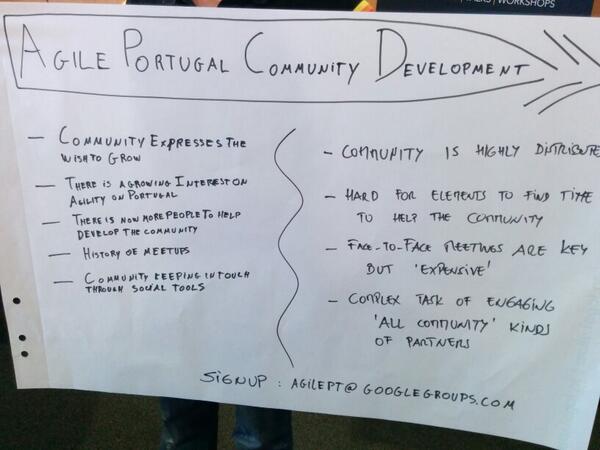 WORKSHOPS
AGILE PORTUGAL COMMUNITY DEVELOPMENT
— COMMUNITY EXPRESSES THE
WISH TO GROW
— THERE IS A GROWING INTEREST ON
AGILITY ON PORTUGAL
— THERE IS NOW MORE PEOPLE TO HELP
DEVELOP THE COMMUNITY
— HISTORY OF MEETUPS
— COMMUNITY KEEPING IN TOUCH
THROUGH SOCIAL TOOLS
- COMMUNITY IS HIGHLY DISTRIBUTE
- HARD FOR ELEMENTS TO FIND TIME
TO HELP THE COMMUNITY
- FACE-TO-FACE MEETINGS ARE KEY
BUT 'EXPENSIVE'
- COMPLEX TASK OF ENGAGING
'ALL COMMUNITY' KINDS
OF PARTNERS
SIGNUP : AGILEPT@GOOGLEGROUPS.COM